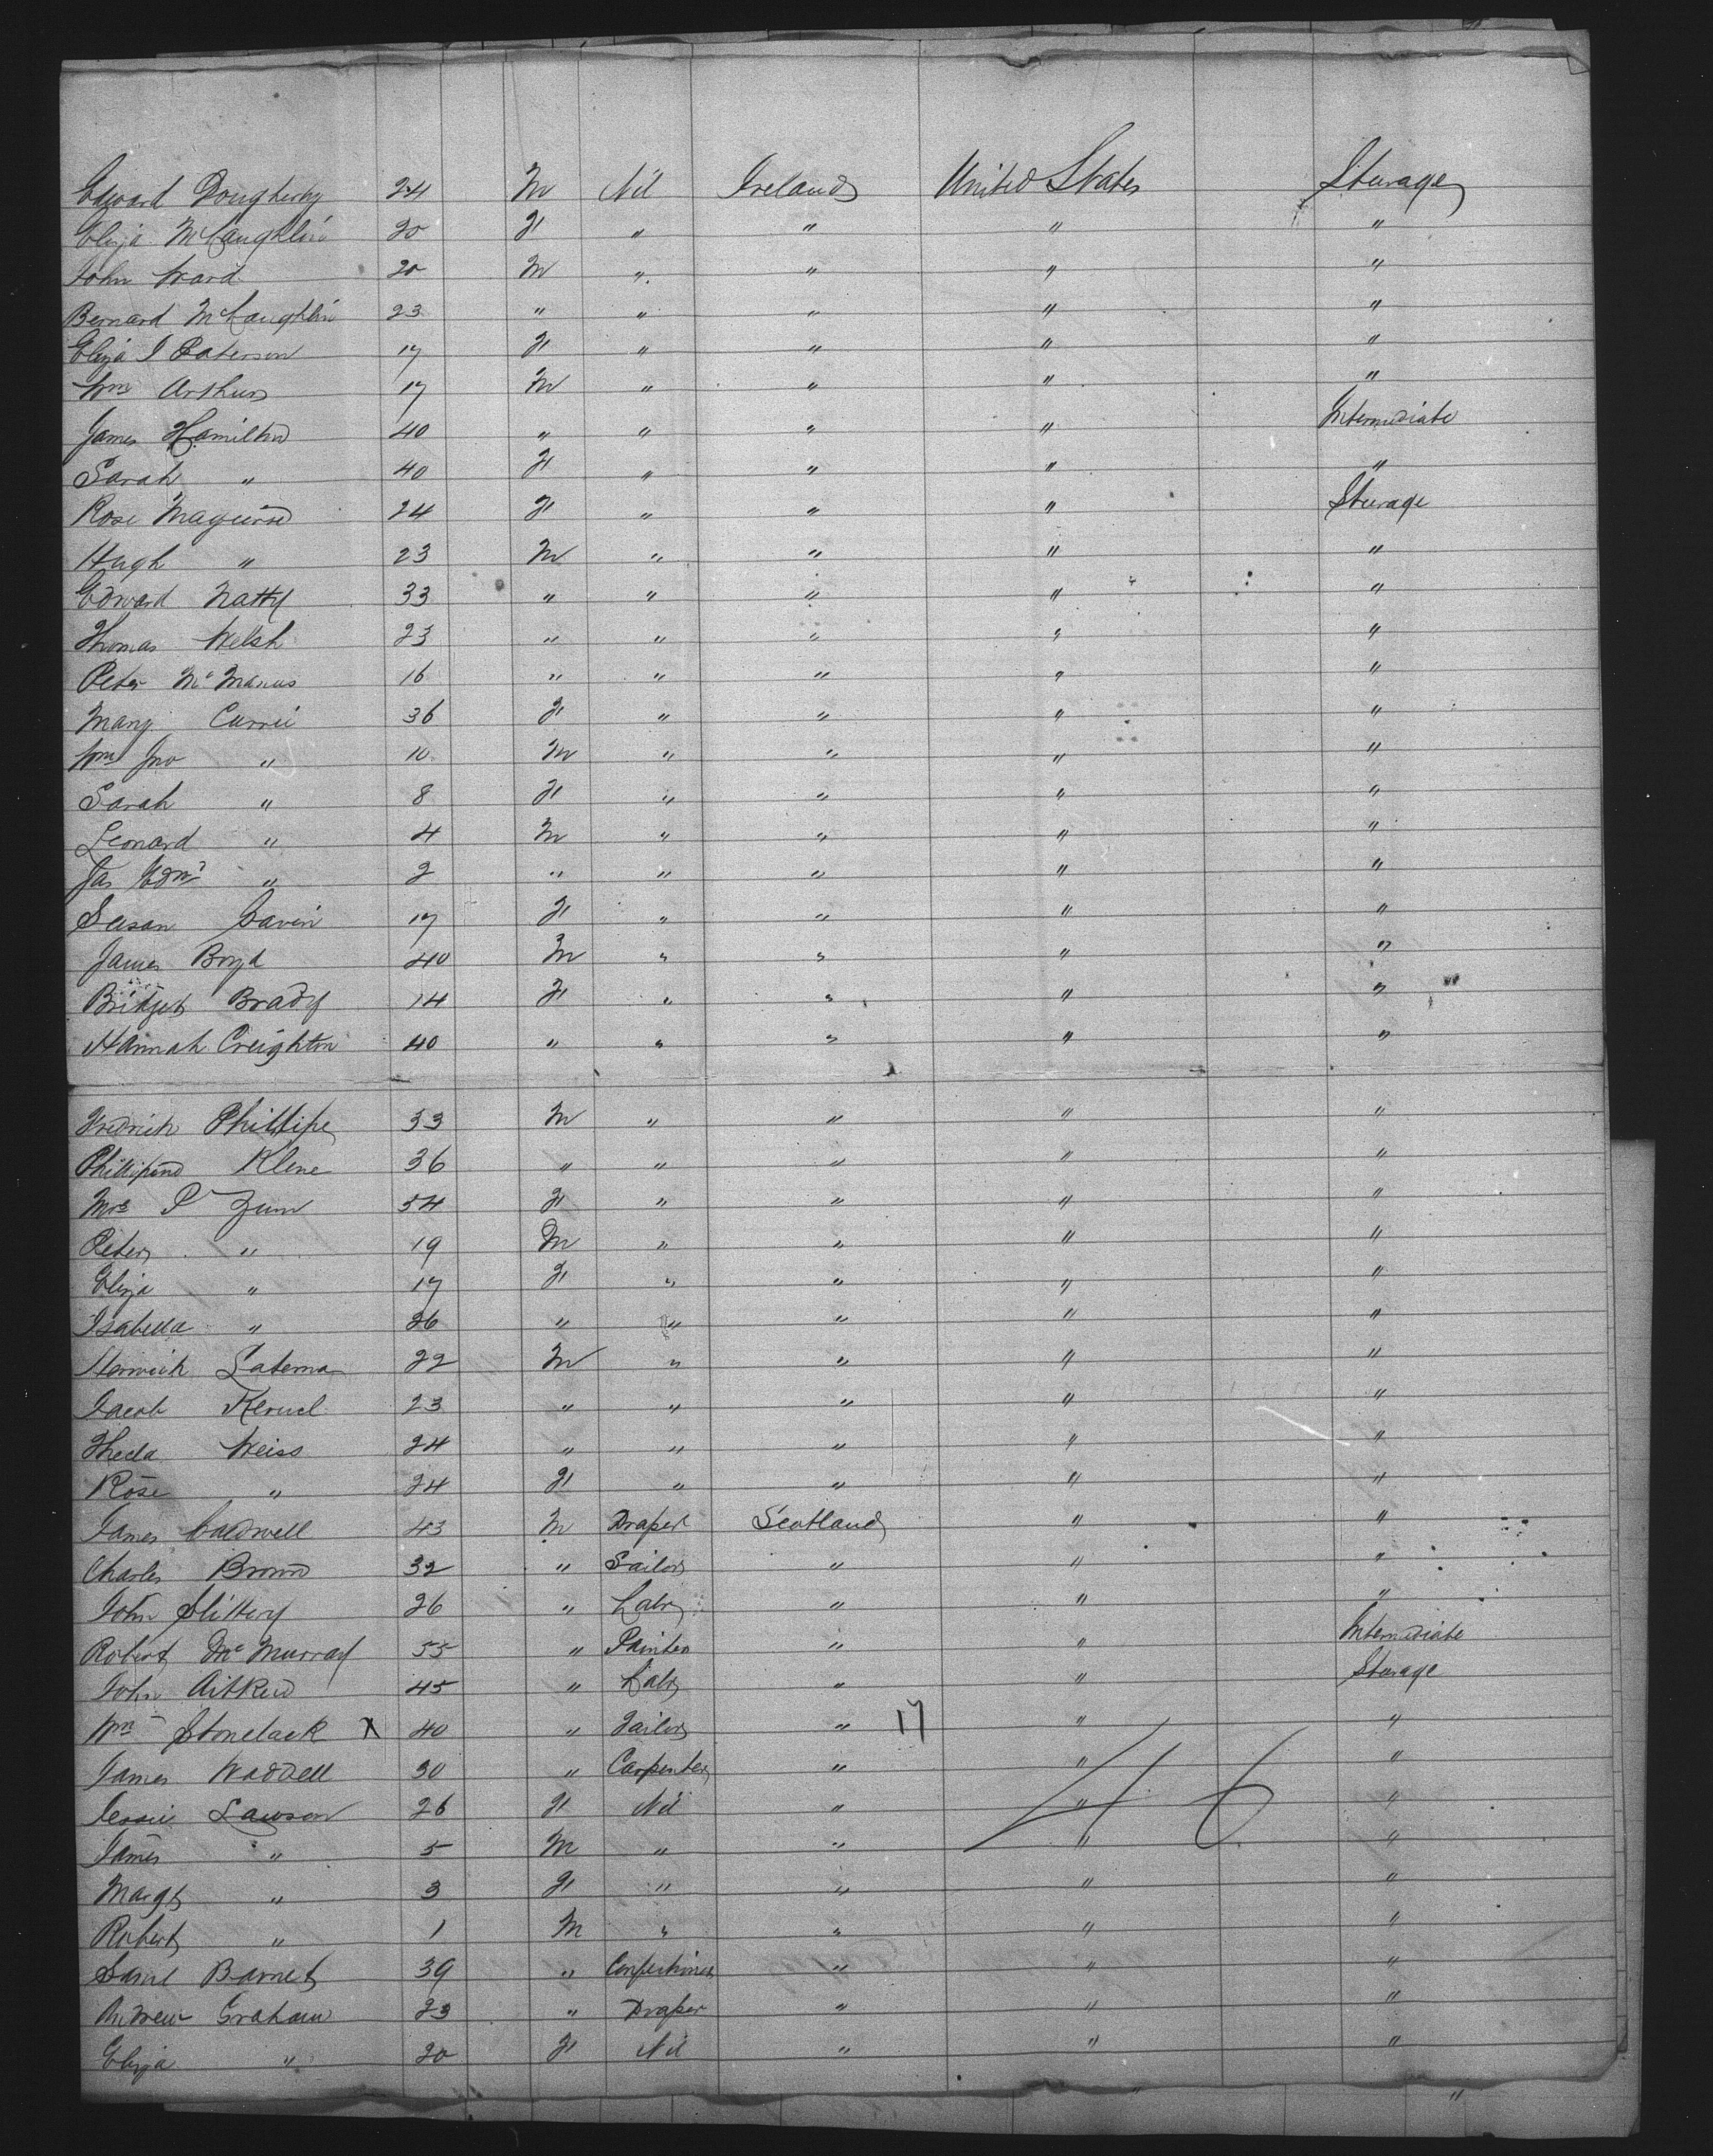 Edward Dougherty 24 M Nil Ireland United States Steerage
Eliza McLaughlin 20 F " " " "
John Ward 20 M " " " "
Bernard McLaughlin 23 " " " " "
Eliza J Paterson 17 F " " " "
Wm Arthur 17 M " " " "
James Hamilton 40 " " " " Intermediate
Sarah " 40 F " " " "
Rose Maguire 24 F " " " Steerage
Hugh " 23 M " " " "
Edward Natty 33 " " " " "
Thomas Welsh 23 " " " " "
Peter McManus 16 " " " " "
Mary Currie 36 F " " " "
Wm Jno " 10 M " " " "
Sarah " 8 F " " " "
Leonard " 4 M " " " "
Jas Edmd " 2 " " " " "
Susan Gavin 17 F " " " "
James Boyd 40 M " " " "
Bridget Brady 14 F " " " "
Hannah Creighton 40 " " " " "
Fredrich Phillipe 33 M " " " "
Klene 36 " " " " "
Mrs P Zum 54 F " " " "
Peter " 19 M " " " "
Eliza " 17 F " " " "
Isabella " 26 " " " " "
Lateman 22 M " " " "
Jacob 23 " " " " "
Theda Weiss 24 " " " " "
Rose " 24 F " " " "
James Caldwell 43 M Draper Scotland " "
Charles Brown 32 " Sailor " " "
John Slittery 26 " Labr " " "
Robert McMurray 55 " Painter " " Intermediate
John Aitken 45 " Labr " " Steerage
Wm Stonelack X 40 " Tailor " 17 " "
James Waddell 30 " Carpenter " " "
Jessie Lawson 26 F Nil " " "
46
James " 5 M " " " "
Margt " 3 F " " " "
Robert " 1 M " " " "
Saml Barnet 39 " Confectioner " " "
Andrew Graham 23 " Draper " " "
Eliza " 20 F Nil " " "
" "